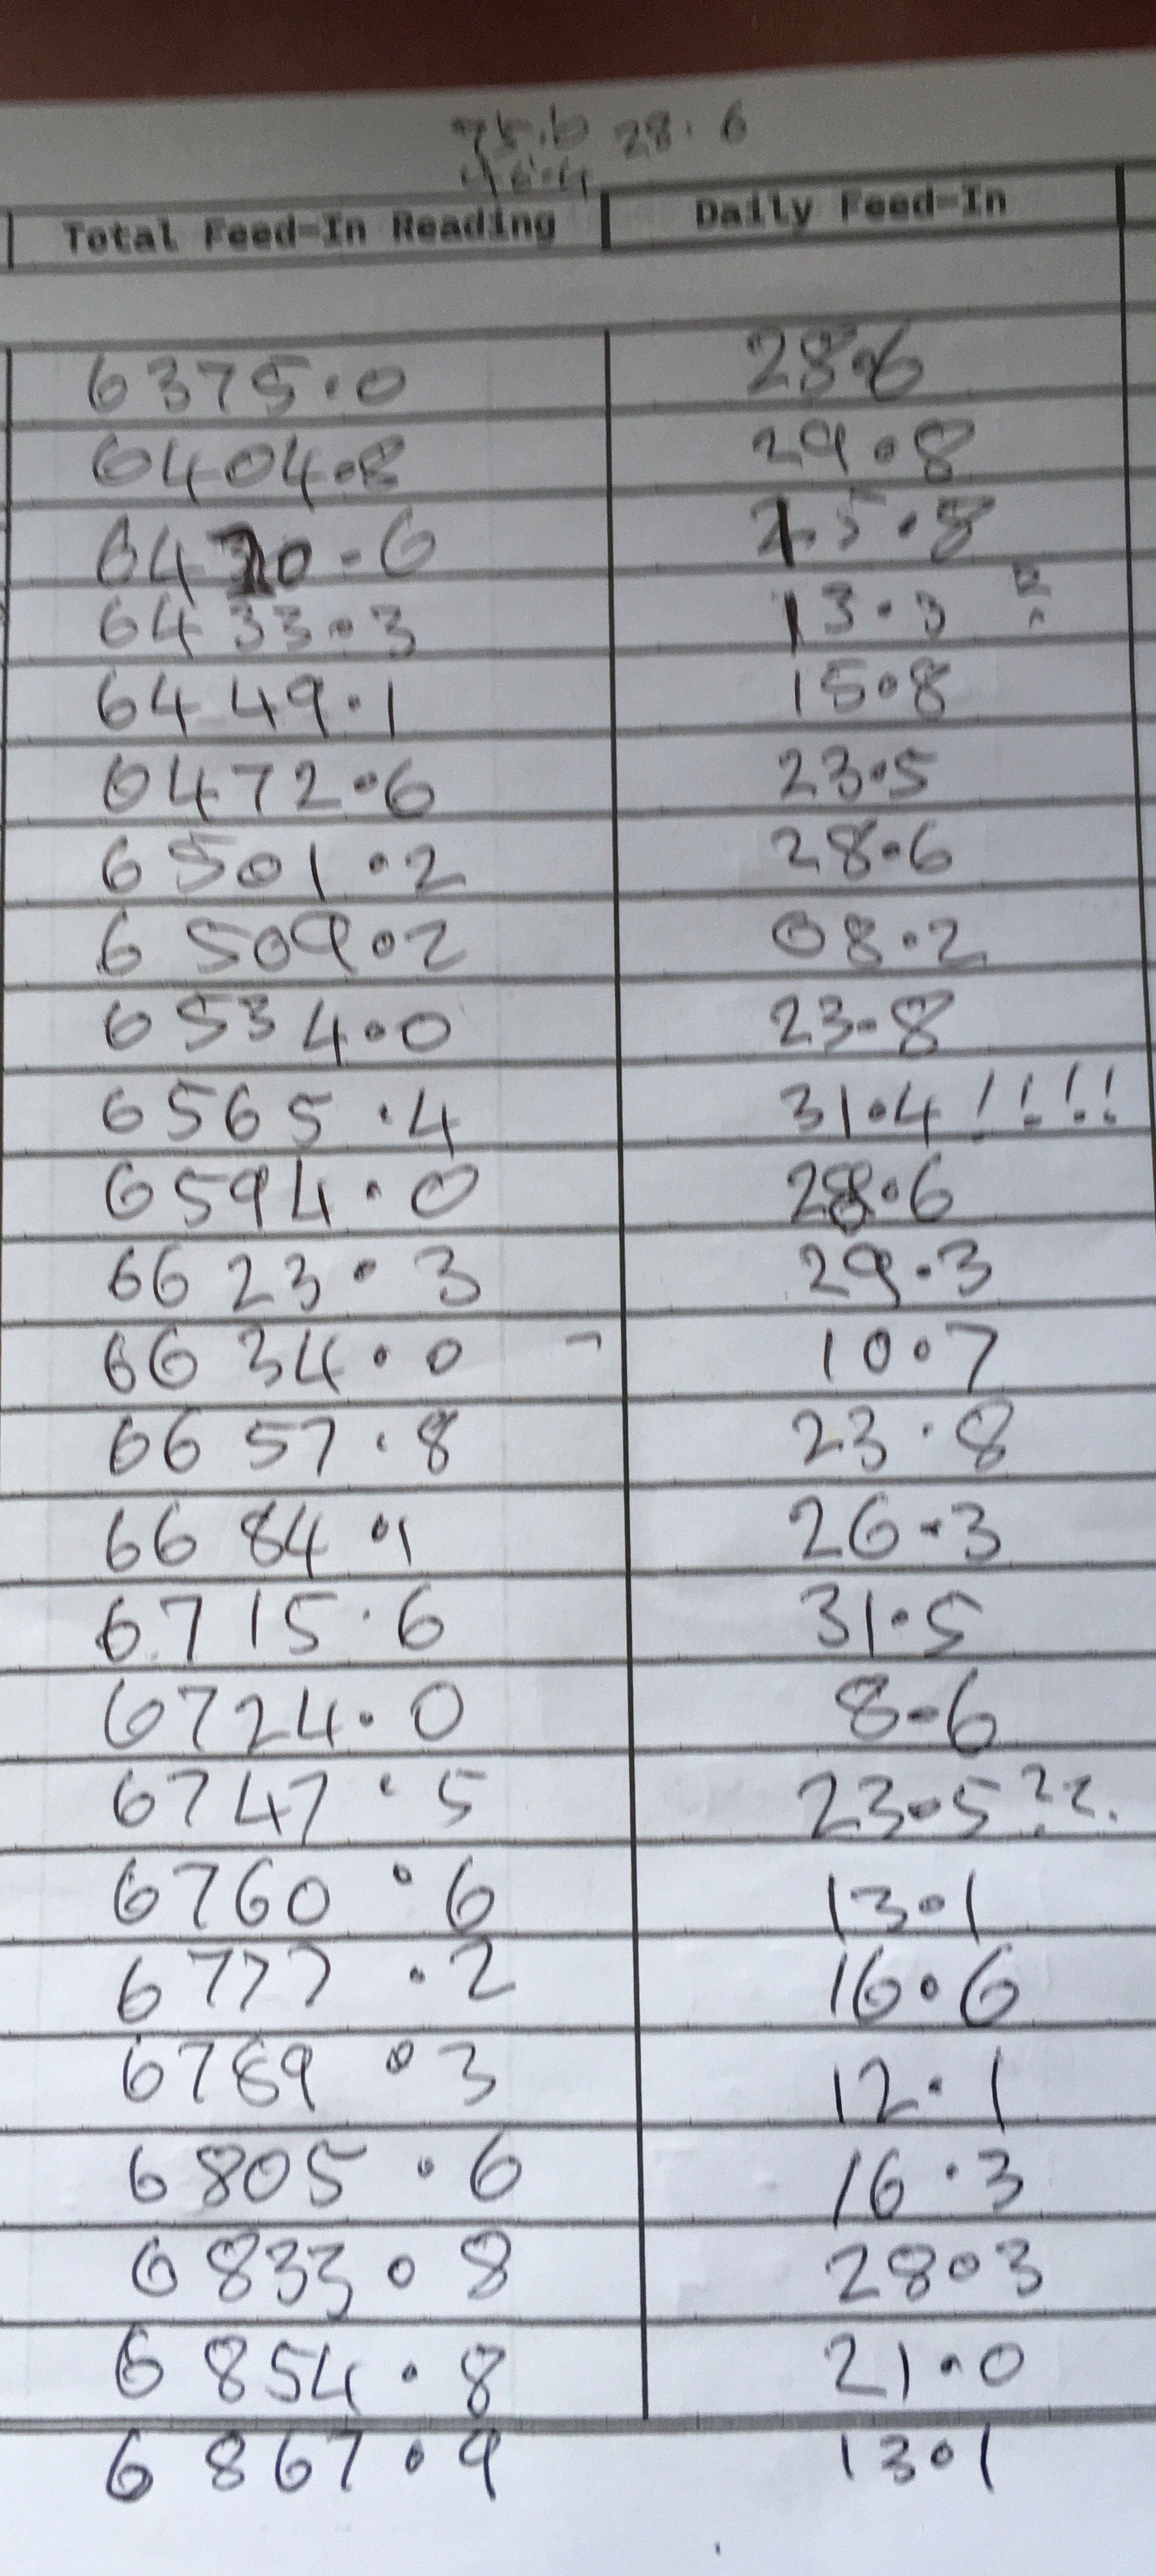 75.6 28.6
46.4
Total Feed-In Reading Daily Feed-In
6375.0 28.6
6404.8 29.8
6420.6 15.8
6433.3 13.3
6449.1 15.8
6472.6 23.5
6501.2 28.6
6509.2 08.2
6534.0 23.8
6565.4 31.4!!!!
6594.0 28.6
6623.3 29.3
6634.0 10.7
6657.8 23.8
6684.1 26.3
6715.6 31.5
6724.0 8.6
6747.5 23.5??
6760.6 13.1
6777.2 16.6
6789.3 12.1
6805.6 16.3
6833.8 28.3
6854.8 21.0
6867.9 13.1